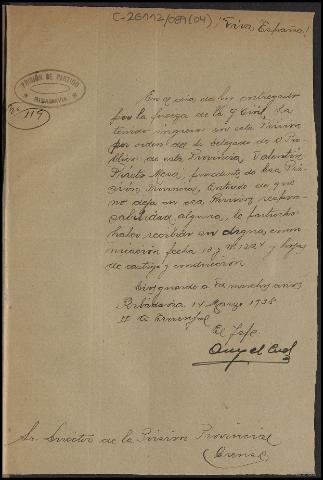 C-26112/089(04)
¡Viva España!
PRISIÓN DE PARTIDO
RIBADAVIA
Nº 119
En el dia de hoy entregado
por la fuerza de la G Civil, ha
tenido ingreso en esta Prision
por orden del Sr delegado de O Pu-
blico de esta Provincia, Valentin
Mera, procedente de esa Pri-
sión Provincial,
no deja en esa Prision respon-
sabilidad alguna, lo participo
haber recibido su digna comu-
nicación fecha 10 y nº 1224 y hojas
de castigo y conduccion
Dios guarde a Vd muchos años
Ribadavia 14 Marzo 1938
II A Triunfal
El Jefe
Sr. Director de la Prision Provincial
Orense